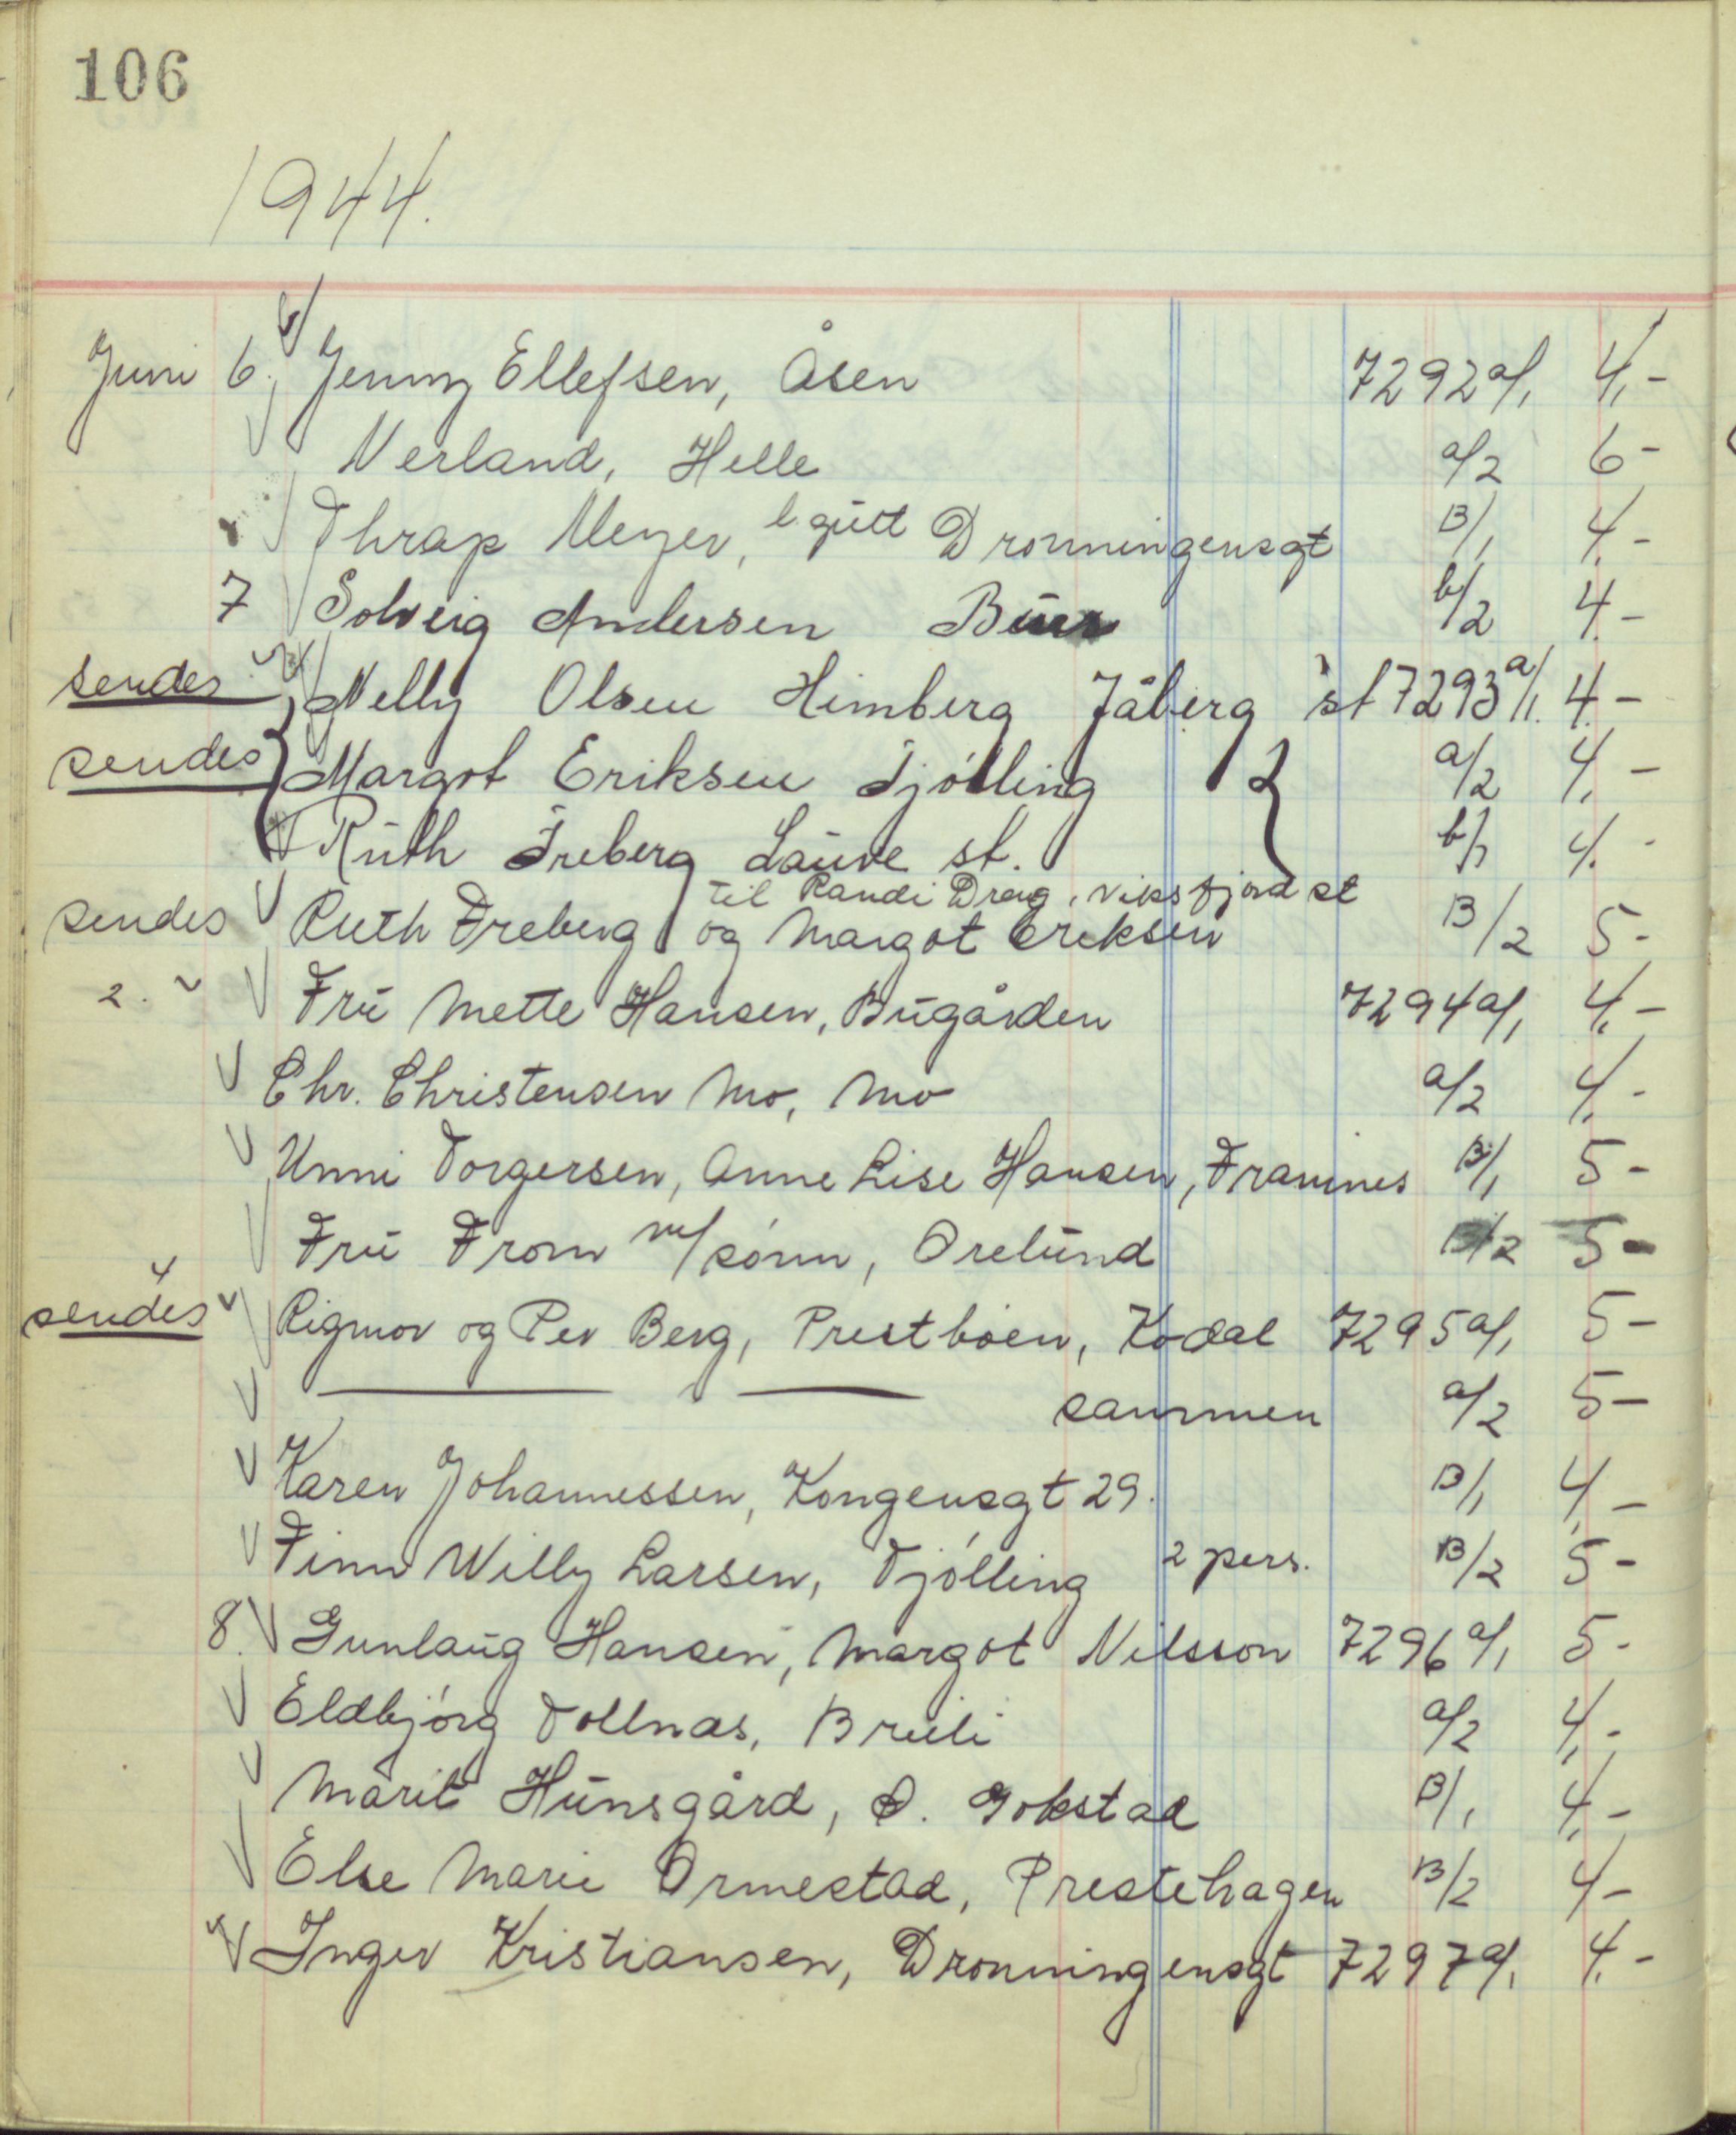 106
1944.
Juni 6. Jenny Ellefsen, Åsen 7292 a/1 4,-
Verland, Helle a/2 6-
Thrap Meyer, l. gutt Dronningensgt B/1 4.-
7 Solveig Andersen b/2 4.-
sendes Nelly Olsen Himberg Jåberg st 7293 a/1. 4.-
sendes Margot Eriksen Tjølling a/2 4,-
Ruth Treberg Lauve st. b/1 4.-
til Randi Drag, Viksfjord st
sendes Ruth Treberg og Margot Eriksen B/2 5-
2. Fru Mette Hansen, Bugården 7294 a/1 4,-
Chr. Christensen Mo, Mo a/2 4,-
Unni Torgersen, Anne Lise Hansen, Framnes B/1 5-
Fru From m/sønn, Orelund B/2 5-
4
sendes Rigmor og Per Berg, Prestbøen, Kodal 7295 a/1 5-
sammen a/2 5-
Karen Johannessen, Kongensgt 29. B/1 4,-
Finn Willy Larsen, Tjølling 2 pers. B/2 5-
8. Gunlaug Hansen, Margot Nilsson 7296 a/1 5-
Eldbjørg Tollnæs, Breili a/2 4,-
Marit Hunsgård, Ø. Gokstad B/1 4,-
Else Marie Ormestad, Prestehagen B/2 4-
Inger Kristiansen, Dronningensgt 7297 a/1 4.-